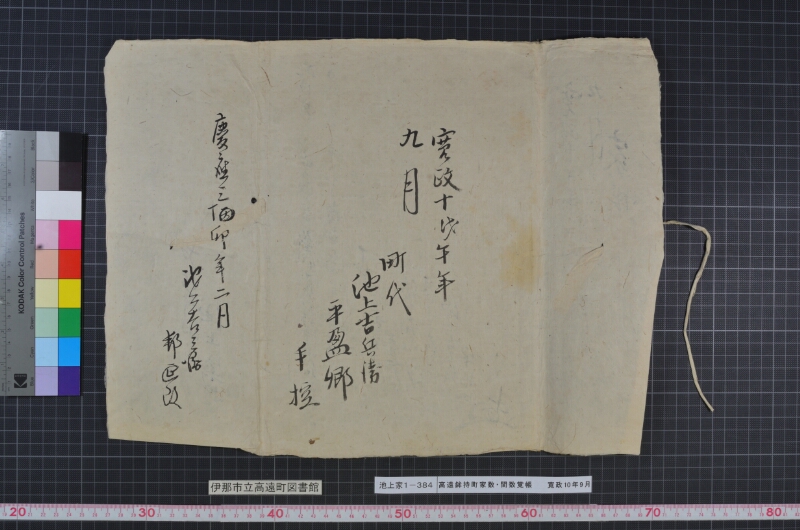 寛政十戊午年
九月
町代
池上吉兵衛
平盈郷
手控
慶應三
卯年二月
伊那市立高遠町図書館
池上家1-384 高遠鉾持町家数・間数覚帳 寛政10年9月
KODAK Color Control Patches
20 30 40 50 60 70 80